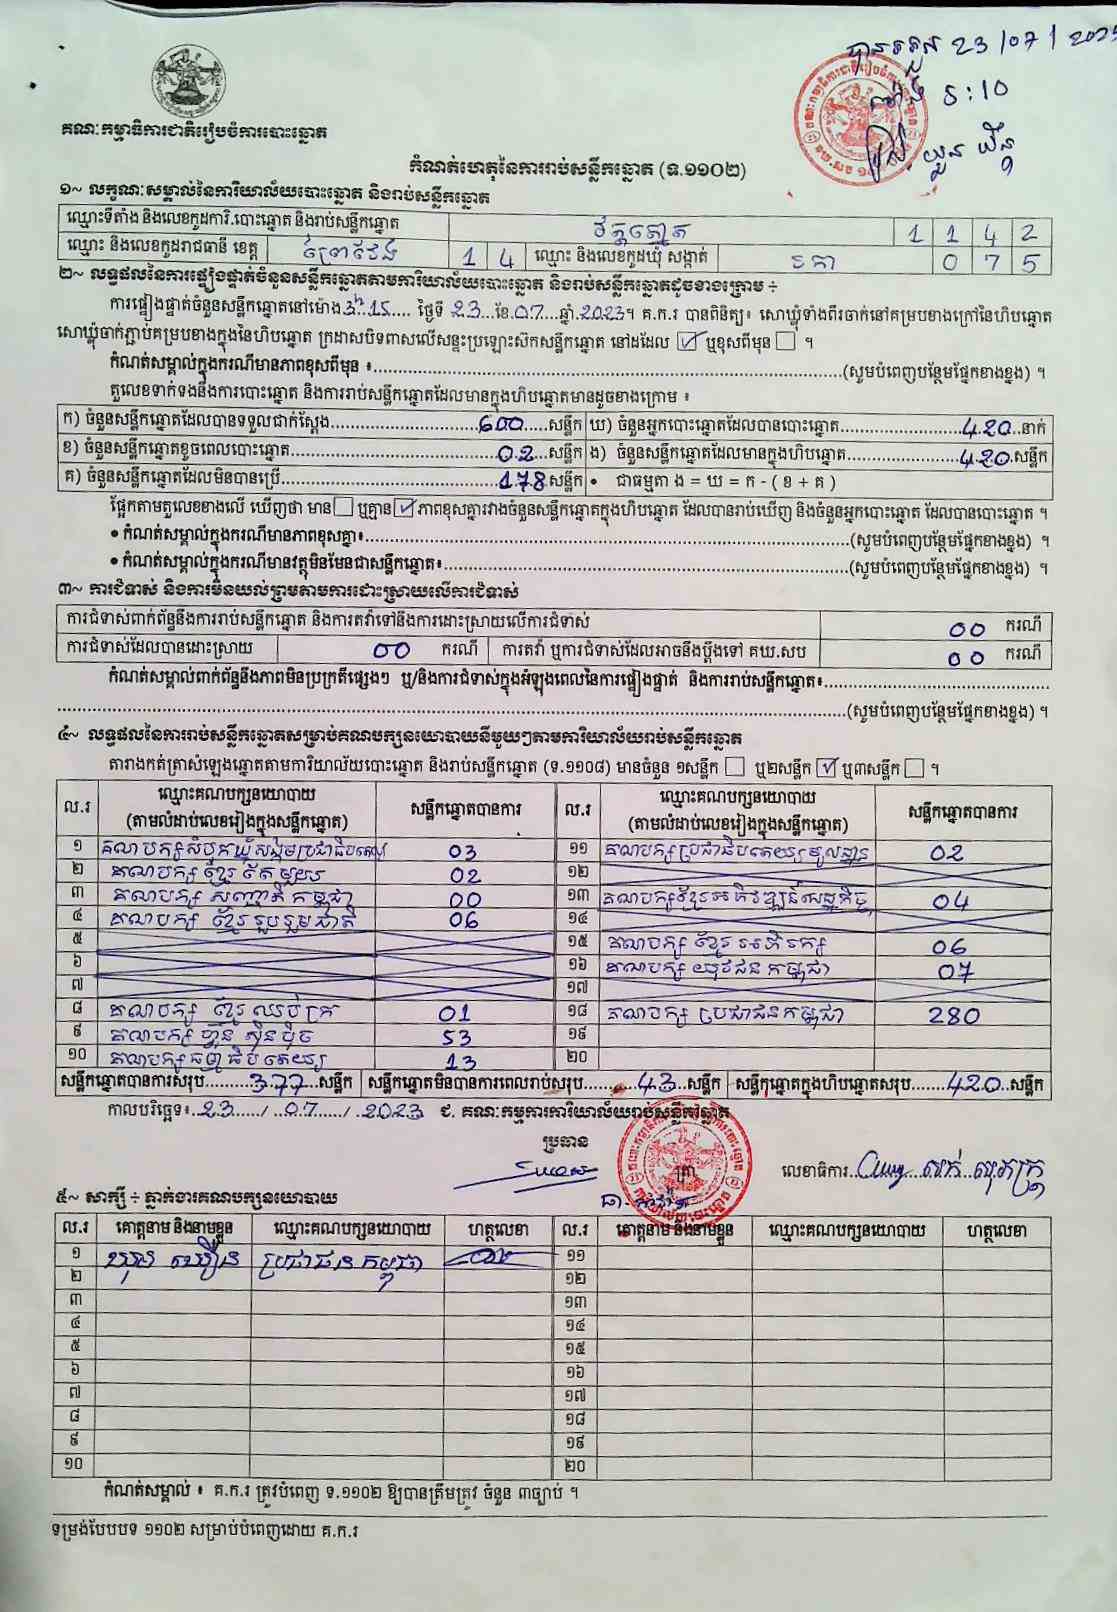 បានទទួល 23/07/2023
ម៉ោង 5:10
គណៈកម្មាធិការជាតិរៀបចំការបោះឆ្នោត
កំណត់ហេតុនៃការរាប់សន្លឹកឆ្នោត (ទ.១១០២)
១~ លក្ខណៈសម្គាល់នៃការិយាល័យបោះឆ្នោត និងរាប់សន្លឹកឆ្នោត
ឈ្មោះទីតាំង និងលេខកូដការិ.បោះឆ្នោត និងរាប់សន្លឹកឆ្នោត វត្តត្នោត 1 1 4 2
ឈ្មោះ និងលេខកូដរាជធានី ខេត្ត ព្រៃវែង 1 4 ឈ្មោះ និងលេខកូដឃុំ សង្កាត់ រកា 0 7 5
២~ លទ្ធផលនៃការផ្ទៀងផ្ទាត់ចំនួនសន្លឹកឆ្នោតតាមការិយាល័យបោះឆ្នោត និងរាប់សន្លឹកឆ្នោតដូចខាងក្រោម ÷
ការផ្ទៀងផ្ទាត់ចំនួនសន្លឹកឆ្នោតនៅម៉ោង 3h 15 ថ្ងៃទី 23 ខែ 07 ឆ្នាំ 2023។ គ.ក.រ បានពិនិត្យ៖ សោឃ្លុំទាំងពីរចាក់នៅគម្របខាងក្រៅនៃហិបឆ្នោត
សោឃ្លុំចាក់ភ្ជាប់គម្របខាងក្នុងនៃហិបឆ្នោត ក្រដាសបិទពាសលើសន្ទះប្រឡោះស៊កសន្លឹកឆ្នោត នៅដដែល ☑ ឬខុសពីមុន ☐ ។
កំណត់សម្គាល់ក្នុងករណីមានភាពខុសពីមុន ៖ (សូមបំពេញបន្ថែមផ្នែកខាងខ្នង) ។
តួលេខទាក់ទងនឹងការបោះឆ្នោត និងការរាប់សន្លឹកឆ្នោតដែលមានក្នុងហិបឆ្នោតមានដូចខាងក្រោម ៖
ក) ចំនួនសន្លឹកឆ្នោតដែលបានទទួលជាក់ស្តែង 600 សន្លឹក ឃ) ចំនួនអ្នកបោះឆ្នោតដែលបានបោះឆ្នោត 420 នាក់
ខ) ចំនួនសន្លឹកឆ្នោតខូចពេលបោះឆ្នោត 02 សន្លឹក ង) ចំនួនសន្លឹកឆ្នោតដែលមានក្នុងហិបឆ្នោត 420 សន្លឹក
គ) ចំនួនសន្លឹកឆ្នោតដែលមិនបានប្រើ 178 សន្លឹក • ជាធម្មតា ង = ឃ = ក - ( ខ + គ )
ផ្អែកតាមតួលេខខាងលើ ឃើញថា មាន ☐ ឬគ្មាន ☑ ភាពខុសគ្នារវាងចំនួនសន្លឹកឆ្នោតក្នុងហិបឆ្នោត ដែលបានរាប់ឃើញ និងចំនួនអ្នកបោះឆ្នោត ដែលបានបោះឆ្នោត ។
• កំណត់សម្គាល់ក្នុងករណីមានភាពខុសគ្នា៖ (សូមបំពេញបន្ថែមផ្នែកខាងខ្នង) ។
• កំណត់សម្គាល់ក្នុងករណីមានវត្ថុមិនមែនជាសន្លឹកឆ្នោត៖ (សូមបំពេញបន្ថែមផ្នែកខាងខ្នង) ។
៣~ ការជំទាស់ និងការមិនយល់ព្រមតាមការដោះស្រាយលើការជំទាស់
ការជំទាស់ពាក់ព័ន្ធនឹងការរាប់សន្លឹកឆ្នោត និងការតវ៉ាទៅនឹងការដោះស្រាយលើការជំទាស់ 00 ករណី
ការជំទាស់ដែលបានដោះស្រាយ 00 ករណី ការតវ៉ា ឬការជំទាស់ដែលអាចនឹងប្តឹងទៅ គឃ.សប 00 ករណី
កំណត់សម្គាល់ពាក់ព័ន្ធនឹងភាពមិនប្រក្រតីផ្សេងៗ ឬ/និងការជំទាស់ក្នុងអំឡុងពេលនៃការផ្ទៀងផ្ទាត់ និងការរាប់សន្លឹកឆ្នោត៖
(សូមបំពេញបន្ថែមផ្នែកខាងខ្នង) ។
៤~ លទ្ធផលនៃការរាប់សន្លឹកឆ្នោតសម្រាប់គណបក្សនយោបាយនីមួយៗតាមការិយាល័យរាប់សន្លឹកឆ្នោត
តារាងកត់ត្រាសំឡេងឆ្នោតតាមការិយាល័យបោះឆ្នោត និងរាប់សន្លឹកឆ្នោត (ទ.១១០៨) មានចំនួន ១សន្លឹក ☐ ឬ២សន្លឹក ☑ ឬ៣សន្លឹក ☐ ។
ល.រ ឈ្មោះគណបក្សនយោបាយ (តាមលំដាប់លេខរៀងក្នុងសន្លឹកឆ្នោត) សន្លឹកឆ្នោតបានការ ល.រ ឈ្មោះគណបក្សនយោបាយ (តាមលំដាប់លេខរៀងក្នុងសន្លឹកឆ្នោត) សន្លឹកឆ្នោតបានការ
១ គណបក្សសំបុកឃ្មុំសង្គមប្រជាធិបតេយ្យ 03 ១១ គណបក្សប្រជាធិបតេយ្យមូលដ្ឋាន 02
២ គណបក្ស ខ្មែរតែមួយ 02 ១២
៣ គណបក្ស សញ្ជាតិកម្ពុជា 00 ១៣ គណបក្សខ្មែរអភិវឌ្ឍន៍សេដ្ឋកិច្ច 04
៤ គណបក្ស ខ្មែររួបរួមជាតិ 06 ១៤
៥ ១៥ គណបក្ស ខ្មែរអភិរក្ស 06
៦ ១៦ គណបក្ស យុវជនកម្ពុជា 07
៧ ១៧
៨ គណបក្ស ខ្មែរឈប់ក្រ 01 ១៨ គណបក្ស ប្រជាជនកម្ពុជា 280
៩ គណបក្ស ហ្វ៊ុនស៊ិនប៉ិច 53 ១៩
១០ គណបក្សធម្មាធិបតេយ្យ 13 ២០
សន្លឹកឆ្នោតបានការសរុប 377 សន្លឹក សន្លឹកឆ្នោតមិនបានការពេលរាប់សរុប 43 សន្លឹក សន្លឹកឆ្នោតក្នុងហិបឆ្នោតសរុប 420 សន្លឹក
កាលបរិច្ឆេទ៖ 23 / 07 / 2023 ជ. គណៈកម្មការការិយាល័យរាប់សន្លឹកឆ្នោត
ប្រធាន
ត្រា លេខាធិការ
៥~ សាក្សី ÷ ភ្នាក់ងារគណបក្សនយោបាយ
ល.រ គោត្តនាម និងនាមខ្លួន ឈ្មោះគណបក្សនយោបាយ ហត្ថលេខា ល.រ គោត្តនាម និងនាមខ្លួន ឈ្មោះគណបក្សនយោបាយ ហត្ថលេខា
១ ប្រជាជនកម្ពុជា ១១
២ ១២
៣ ១៣
៤ ១៤
៥ ១៥
៦ ១៦
៧ ១៧
៨ ១៨
៩ ១៩
១០ ២០
កំណត់សម្គាល់ ៖ គ.ក.រ ត្រូវបំពេញ ទ.១១០២ ឱ្យបានត្រឹមត្រូវ ចំនួន ៣ច្បាប់ ។
ទម្រង់បែបបទ ១១០២ សម្រាប់បំពេញដោយ គ.ក.រ